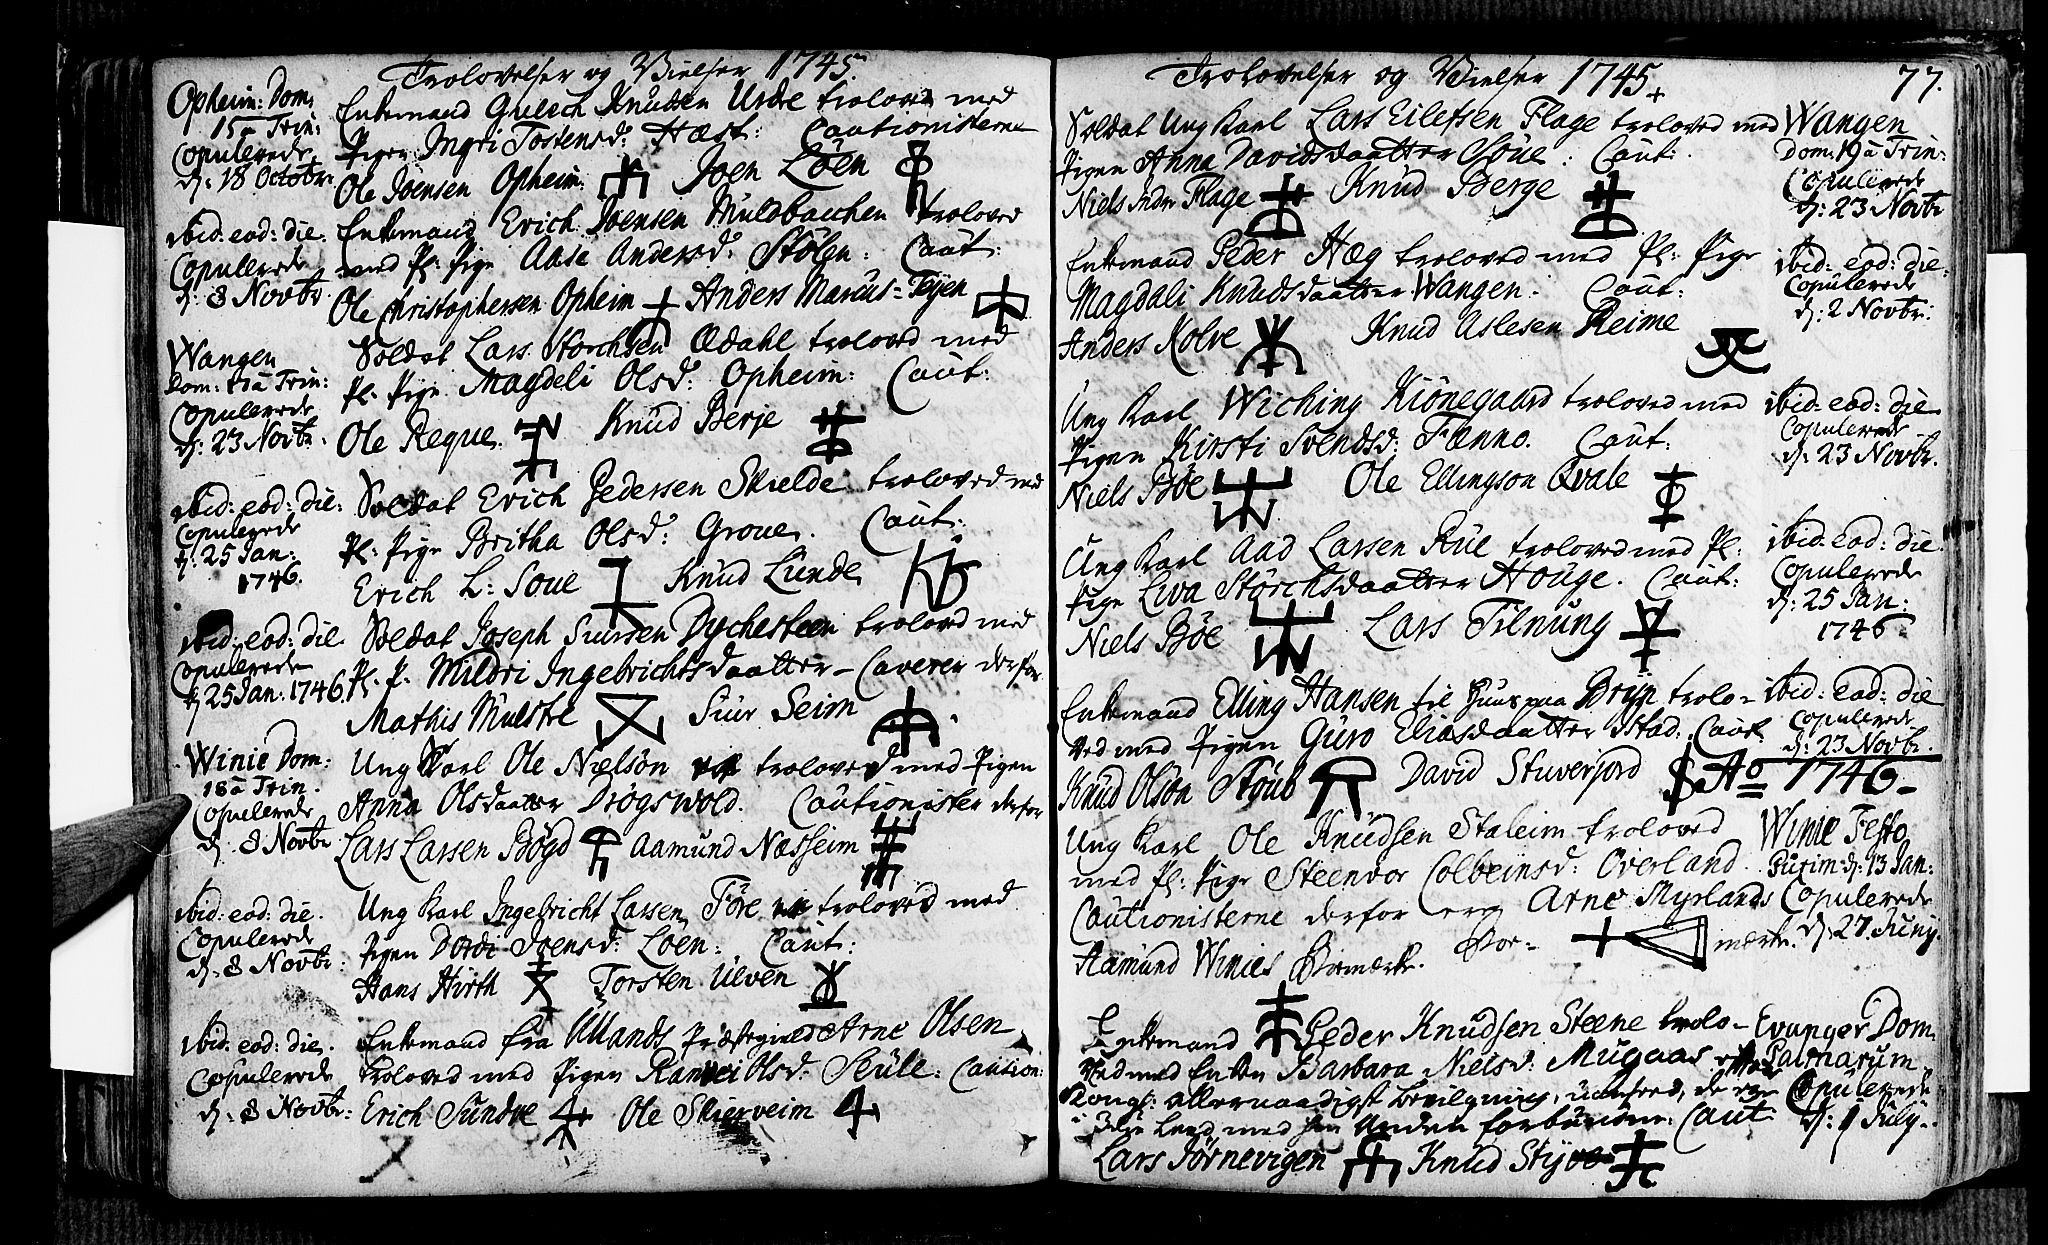 Trolovelser og Vielser 1745.
Opheim: Dom:
15 à Trin:
Copulerede
d: 18 Octobr:
Enkemand Gulech Knudsen Urde troloved med
Pigen Ingri Tostensd: Hæst: Cautionisterne
Ole Joensen Opheim. Joen Löen
ibid: eod: die.
Copulerede
d: 8 Novbr.
Enkemand Erich Joensen Muldbacchen troloved
med Pl: Pige Aase Andersd: Stölen: Caut:
Ole Christophersen Opheim Anders Marcus-Teijen
Wangen
Dom: 17 à Trin:
Copulerede
d: 23 Novbr.
Soldat Lars Storchsen Ædahl troloved med
Pl: Pige Magdeli Olsd: Opheim: Caut:
Ole Reque. Knud Berje
ibid: eod: die:
Copulerede
d: 25 Jan:
1746.
Soldat Erich Pedersen Skielde troloved med
Pl: Pige Britha Olsd: Groue. Caut:
Erich L: Soue Knud Lunde
ibid: eod: die
Copulerede
d 25 Jan: 1746.
Soldat Joseph Siursen Dychesteen troloved med
Pl: P: Mildri Ingebrichtsdaatter - Caverer derfor
Mathis Mulstre Siur Seim
Winie Dom:
18 à Trin.
Copulerede
d: 8 Novbr
Ung Karl Ole Nielsön troloved med Pigen
Anna Olsdaatter Drögswold. Cautionister derfor
Lars Larsen Bögd Aamund Næsheim
ibid: eod: die.
Copulerede
d: 8 Novbr:
Ung Karl Ingebricht Larsen Före troloved med
Pigen Dordi Joensd: Löen: Caut:
Hans Hirth Torsten Ulven
ibid: eod: die.
Copulerede
d: 8 Novbr:
Enkemand fra Ullands Præstegield Arne Olsen
troloved med Pigen Ranvei Olsd: Skule: Caution:
Erich Sundve Ole Skierveim
Trolovelser og Vielser 1745. 77.
Soldat Ung Karl Lars Eilefsen Flage troloved med
Pigen Anna Davidsdaatter Soue: Caut:
Niels Flage Knud Berge
Wangen
Dom: 19 à Trin:
Copulerede
d: 23 Novbr
Enkemand Peder Hæg troloved med Pl: Pige
Magdali Knudsdaatter Wangen: Caut:
Anders Kolve Knud Aslesen Reime
ibid: eod: die:
Copulerede
d: 2 Novbr:
Ung Karl Wiching Kiönegaard troloved med
Pigen Kirsti Svendsd: Fænno. Caut:
Niels Böe Ole Ellingson Qvale
ibid: eod: die
Copulerede
d: 23 Novbr.
Ung Karl Aad Larsen Rue troloved med Pl:
Pige Liva Storchsdaatter Houge. Caut:
Niels Böe Lars Tilnung
ibid: eod: die.
Copulerede
d: 25 Jan:
1746.
Enkemand Elling Hansen til Huus paa Bryn trolo-
ved med Pigen Guro Eliasdaatter Istad: Caut:
Knud Olsön Steub David Stuverjord
ibid: eod: die
Copulerede
d: 23 Novbr.
Ao 1746 -
Ung Karl Ole Knudsen Staleim troloved
med Pl: Pige Steenvor Colbeinsd: Överland.
Cautionisterne derfor ere Arne Myrlands
Aamund Winies Bomærke. Bo- mærke.
Winie Festo
Purim: d: 13 Jan:
Copulerede
d: 27. Junij.
Enkemand Peder Knudsen Steene trolo-
ved med Enken Barbara Nielsd: Mugaas
Kongl: allernaadigst bevilgning, uanseed, de ere
i 3die Leed med hin Anden forbundne: Caut
Lars Törnevigen Knud Styve
Evanger Dom.
Palmarum
Copulerede
d: 1 July.